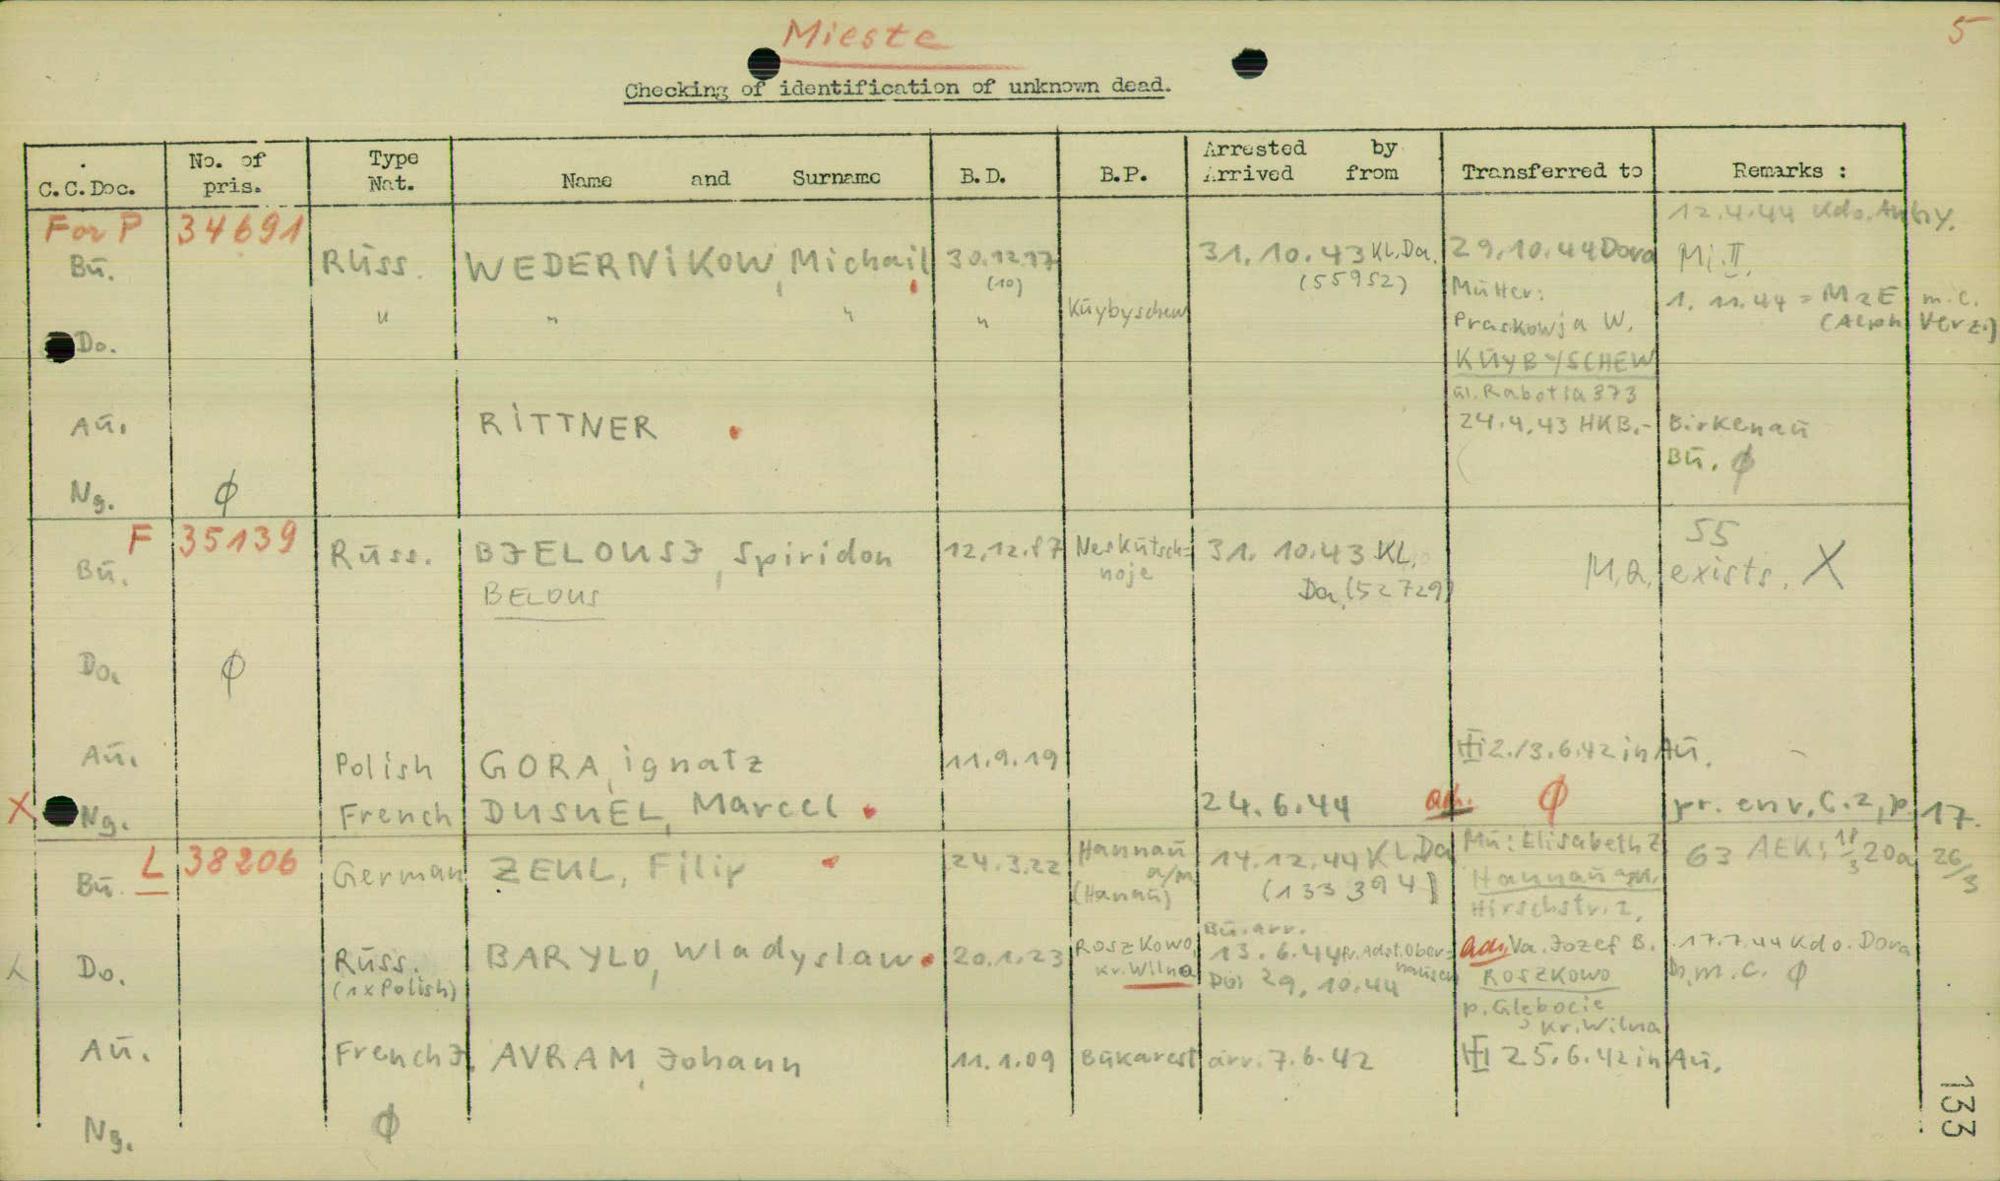 Mieste
5
Checking of identification of unknown dead.
C.C.Doc. No. of pris. Type Nat. Name and Surname B.D. B.P. Arrested by Arrived from Transferred to Remarks :
For P 34691 12.4.44 Kdo.
Bu. Russ. WEDERNIKOW, Michail 30.12.17 31.10.43 KL.Da. 29.10.44 Dora Mi.II.
(10) (55952) Mutter: 1. 11.44 = M2E m.c.
" " " " Kuybyschew Praskowja W. (Alph Verz.)
Do. KUYBYSCHEW
ul. Rabotta 373
Au. RITTNER 24.4.43 HKB.- Birkenau
Bu. ϕ
Ng. ϕ
F 35139 55
Bu. Russ. BJELOUSJ, Spiridon 12.12.17 Neskutsch= 31. 10.43 KL. M.Q. exists. X
BELOUS noje Da.(52729)
Do. ϕ
Au. Polish GORA, ignatz 11.9.19 2./3.6.42 in Au. -
X Ng. French DUSUEL, Marcel 24.6.44 ad. ϕ pr. env. C.2, p. 17.
L 38206 German ZEUL, Filip 24.3.22 Hannau a/m 14.12.44 KL.Da Mu: Elisabeth Z 63 AEK: 18/3 20a 26/3
Bu. (Hanau) (133394) Hannau a/M.
Hirschstr. 2,
Bu. arr.
X Do. Russ. BARYLO, Wladyslaw 20.1.23 Roszkowo, 13.6.44 ad. Va. Jozef B. 17.7.44 Kdo. Dora
(1x Polish) Kr. Wilna Do: 29.10.44 ROSZKOWO Do, m.c. ϕ
p. Glebocie
Kr. Wilna
Au. French J. AVRAM, Johann 11.1.09 Bukarest arr. 7.6.42 25.6.42 in Au.
Ng. ϕ
133